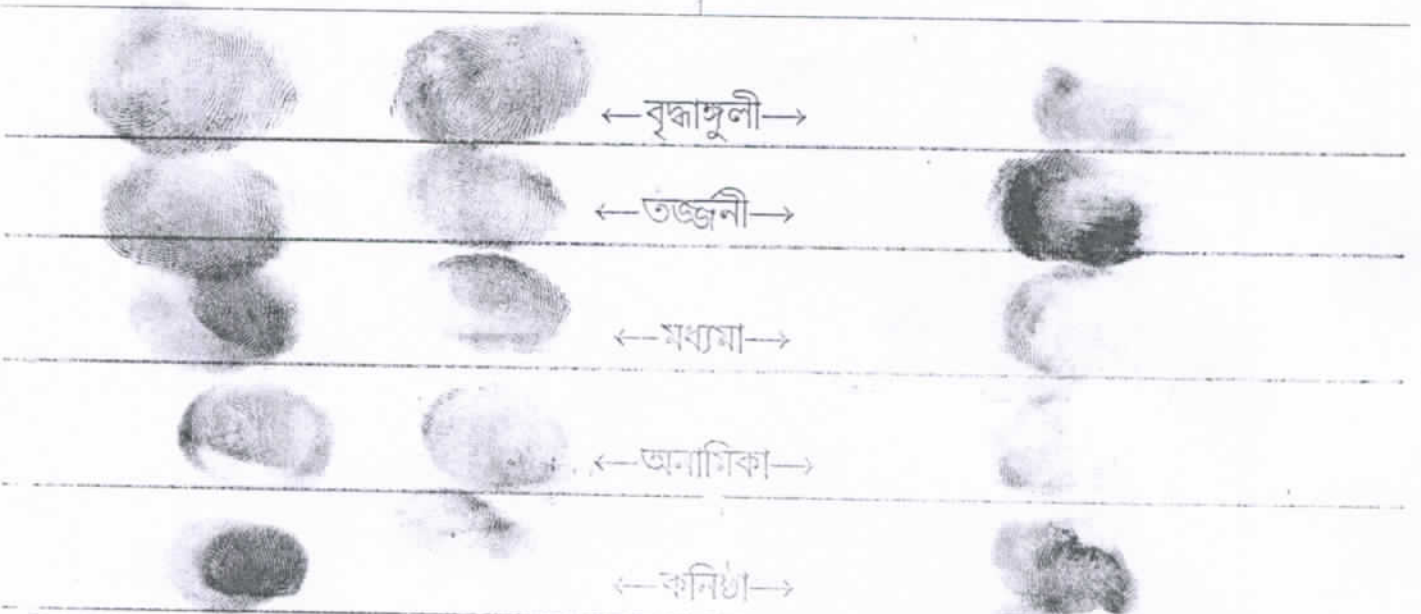 ←বৃদ্ধাঙ্গুলী→
←তর্জ্জনী→
←মধ্যমা→
←অনামিকা→
←কনিষ্ঠা→